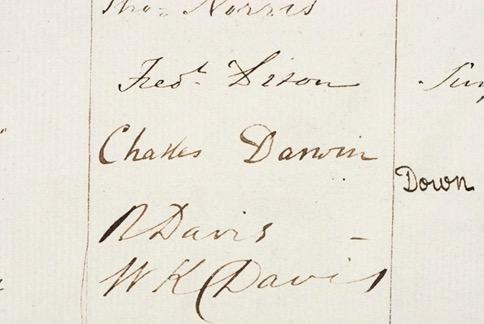 Thos Norris
Fredk Dixon
Charles Darwin
Down
R Davis
W K Davis